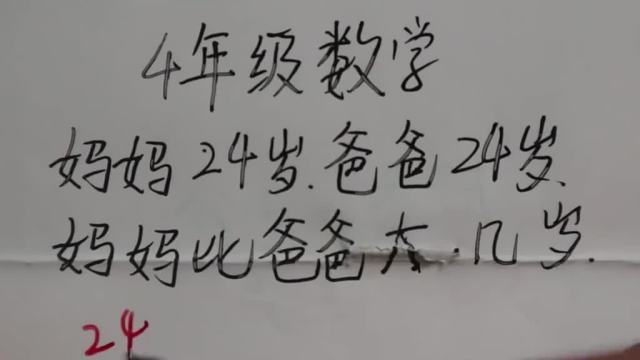 4年级数学
妈妈24岁.爸爸24岁.
妈妈比爸爸大.几岁.
24